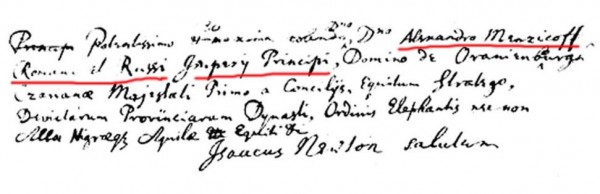 Principi Potentissimo summoque colendo Dno Dno Alexandro Menzicoff
Romani et Russi Imperij Principi, Domino de Oranienburgh
Czarianæ Majestati Primo a Concilijs, Equitum
Devictarum Provinciarum Dynasti, Ordinis Elephantis nec non
Albæ Nigræq Aquilæ Equiti &c
Isaacus Newton salutem